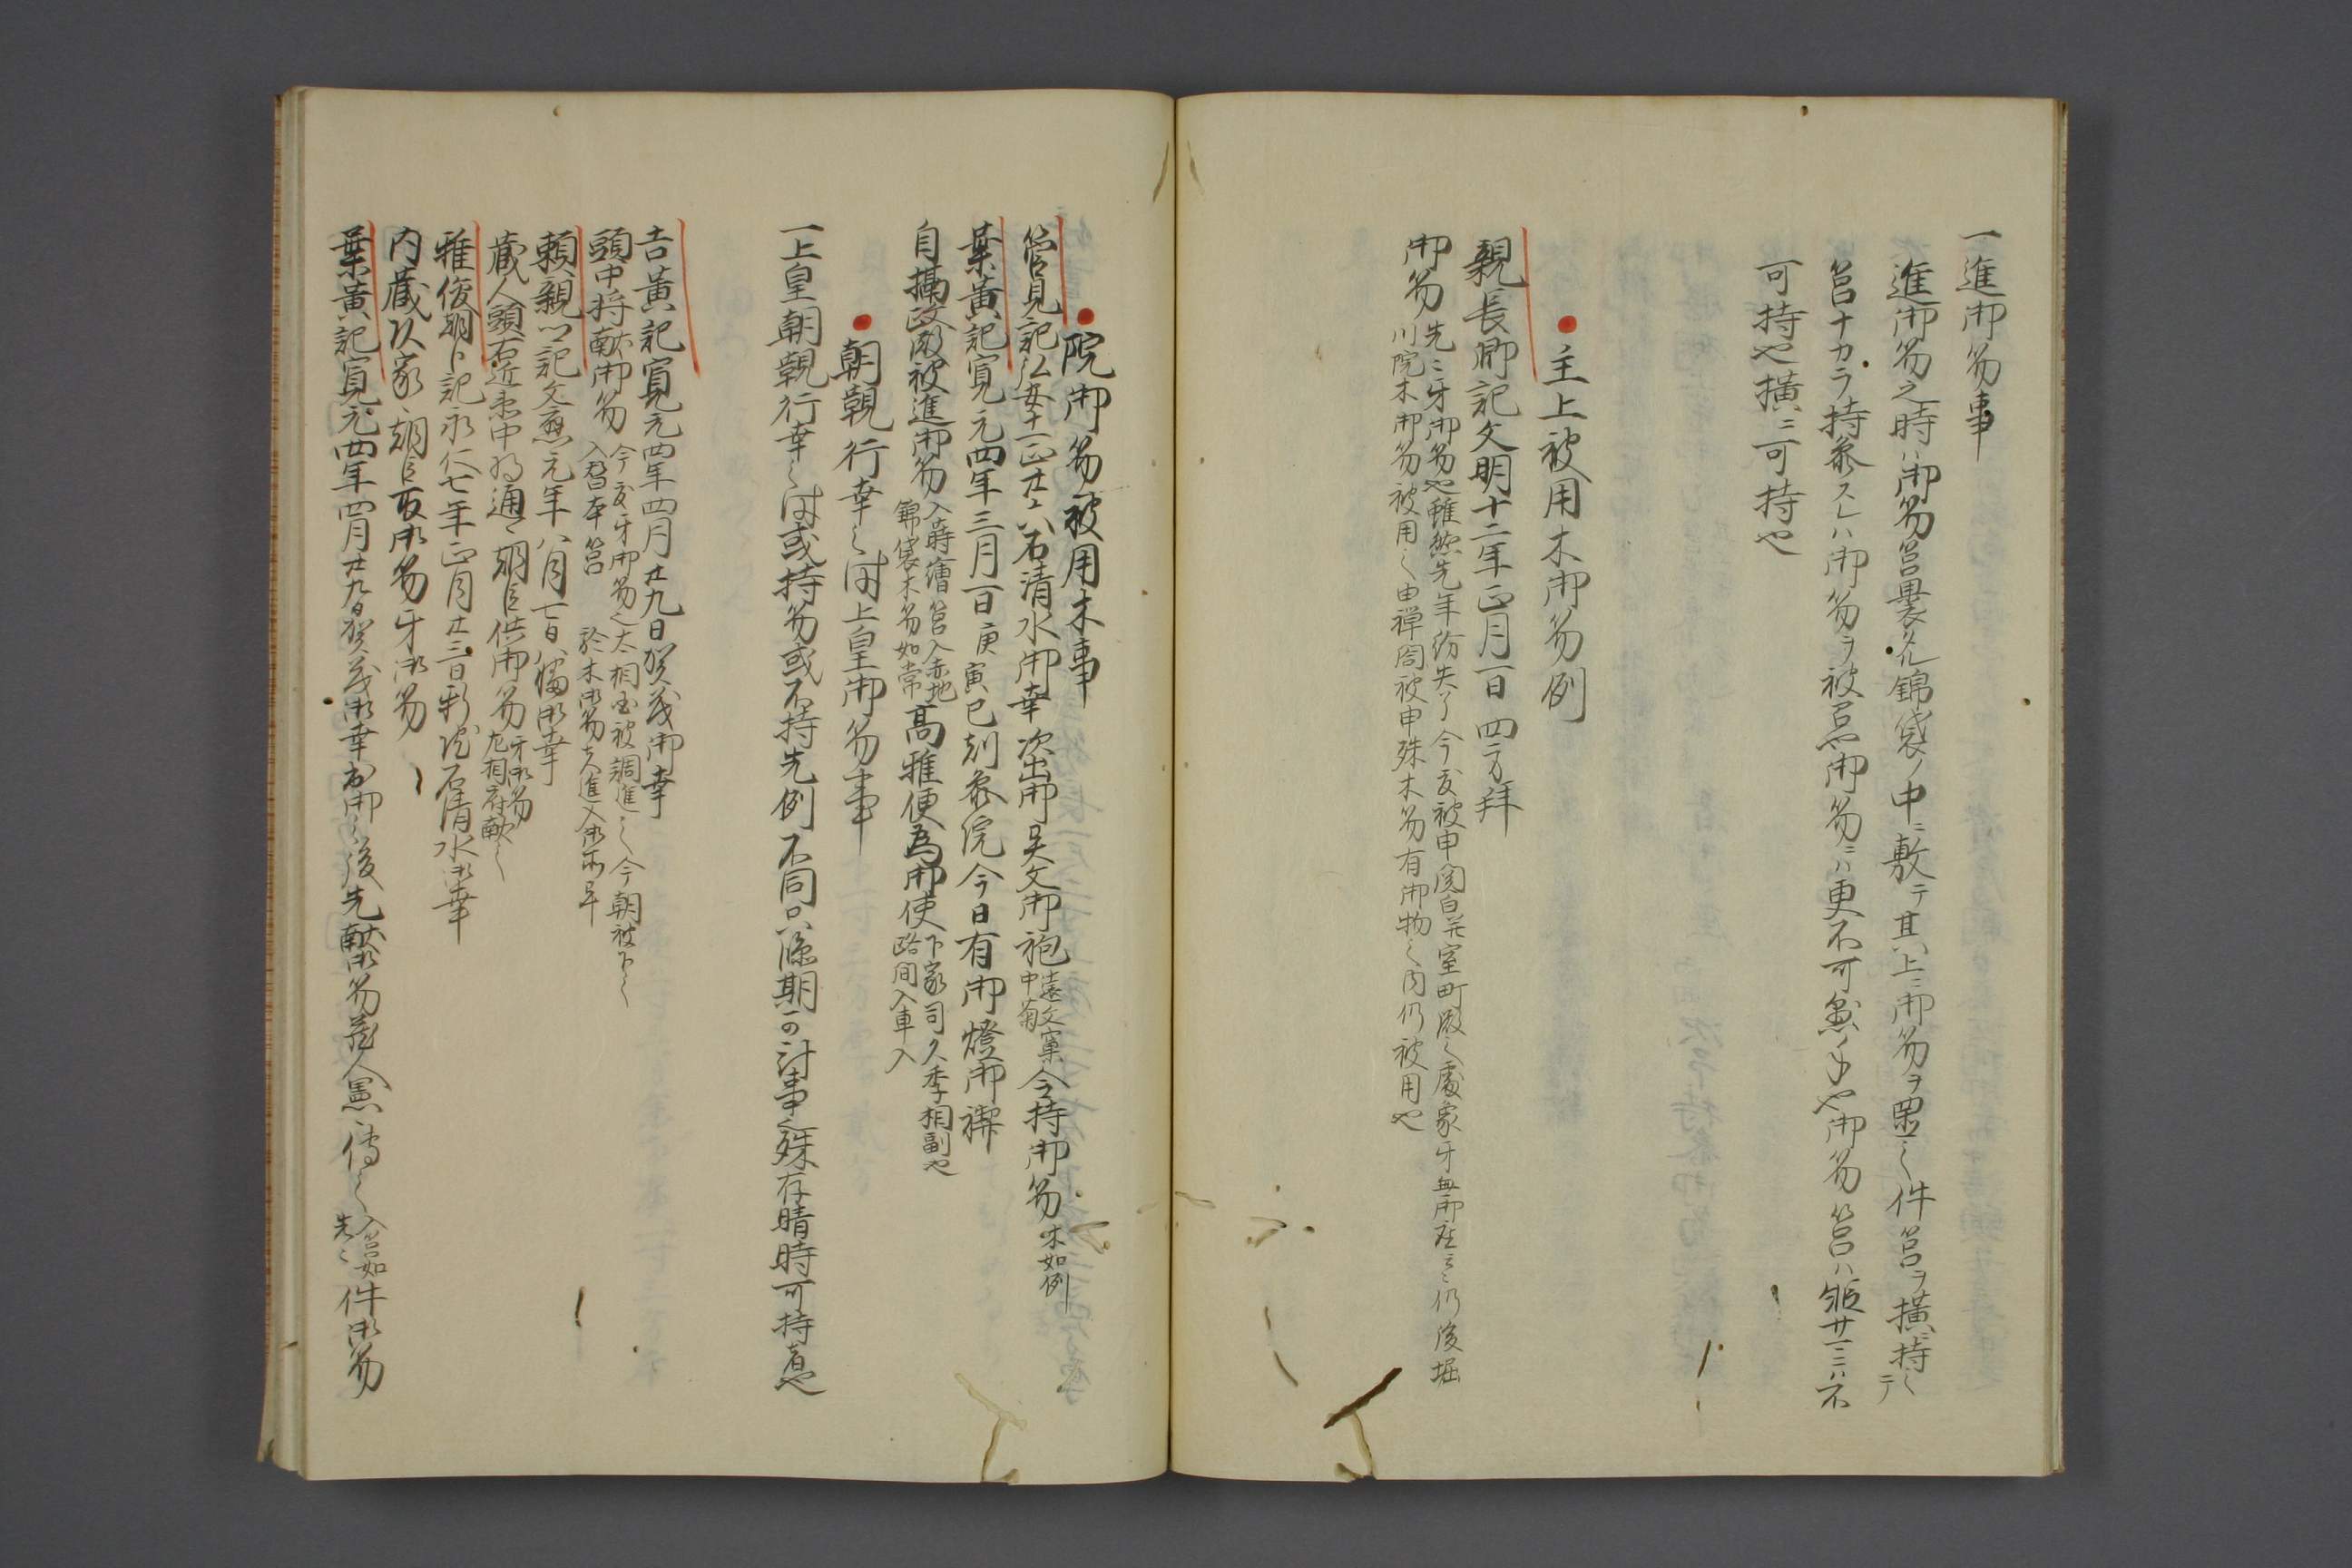 一進御笏事
進御笏之時ハ御笏筥裏タル錦袋ノ中ニ敷テ其上ニ御笏ヲ置之件筥ヲ横ニ持之テ
筥ナカラ持参スレハ御笏ヲ被召御笏ニハ更不可懸手也御笏筥ハ縦サマニハ不
可持也横ニ可持也
主上被用木御笏例
親長卿記文明十二年正月一日四方拝
御笏先ニ牙御笏也雖然先年紛失了今度被申関白并室町殿之處象牙無御座云々仍後堀
川院木御笏被用之由禅閤被申殊木笏有御物之内仍被用也
院御笏被用木事
管見記弘安十一正廿六石清水御幸次出御呉文御袍遠文窠中菊令持御笏木如例
葉黄記寛元四年三月一日庚寅巳刻参院今日有御燈御禊
自摂政殿被進御笏入蒔繪筥入赤地錦袋木笏如常高雅便為御使下家司久季相副也路間入車入
朝覲行幸之時上皇御笏事
一上皇朝覲行幸之時或持笏或不持先例不同只隨期可計事之殊存晴時可持息也
吉黄記寛元四年四月廿九日賀茂御幸
頭中将献御笏今度牙御笏之太相国被調進之今朝被下之入唐本筥於木御笏者大進入御所早
頼親卿記文應元年八月七日八幡御幸
蔵人頭右近中将通朝臣供御笏牙御笏左相府献之
雅俊朝臣記永仁七年正月廿三日新院石清水御幸
内蔵頭家朝臣取御笏牙御笏
葉黄記寛元四年四月廿九日賀茂御幸出御之後先献御笏蔵人憲傳之入筥如先々件御笏